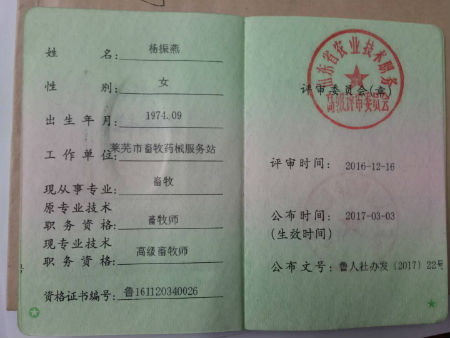 姓名: 杨振燕
性别: 女
出生年月: 1974.09
工作单位: 莱芜市畜牧药械服务站
现从事专业: 畜牧
原专业技术
职务资格: 畜牧师
现专业技术
职务资格: 高级畜牧师
资格证书编号: 鲁161120340026
山东省农业技术职务
高级评审委员会
评审委员会(章)
评审时间: 2016-12-16
公布时间: 2017-03-03
(生效时间)
公布文号: 鲁人社办发〔2017〕22号
号